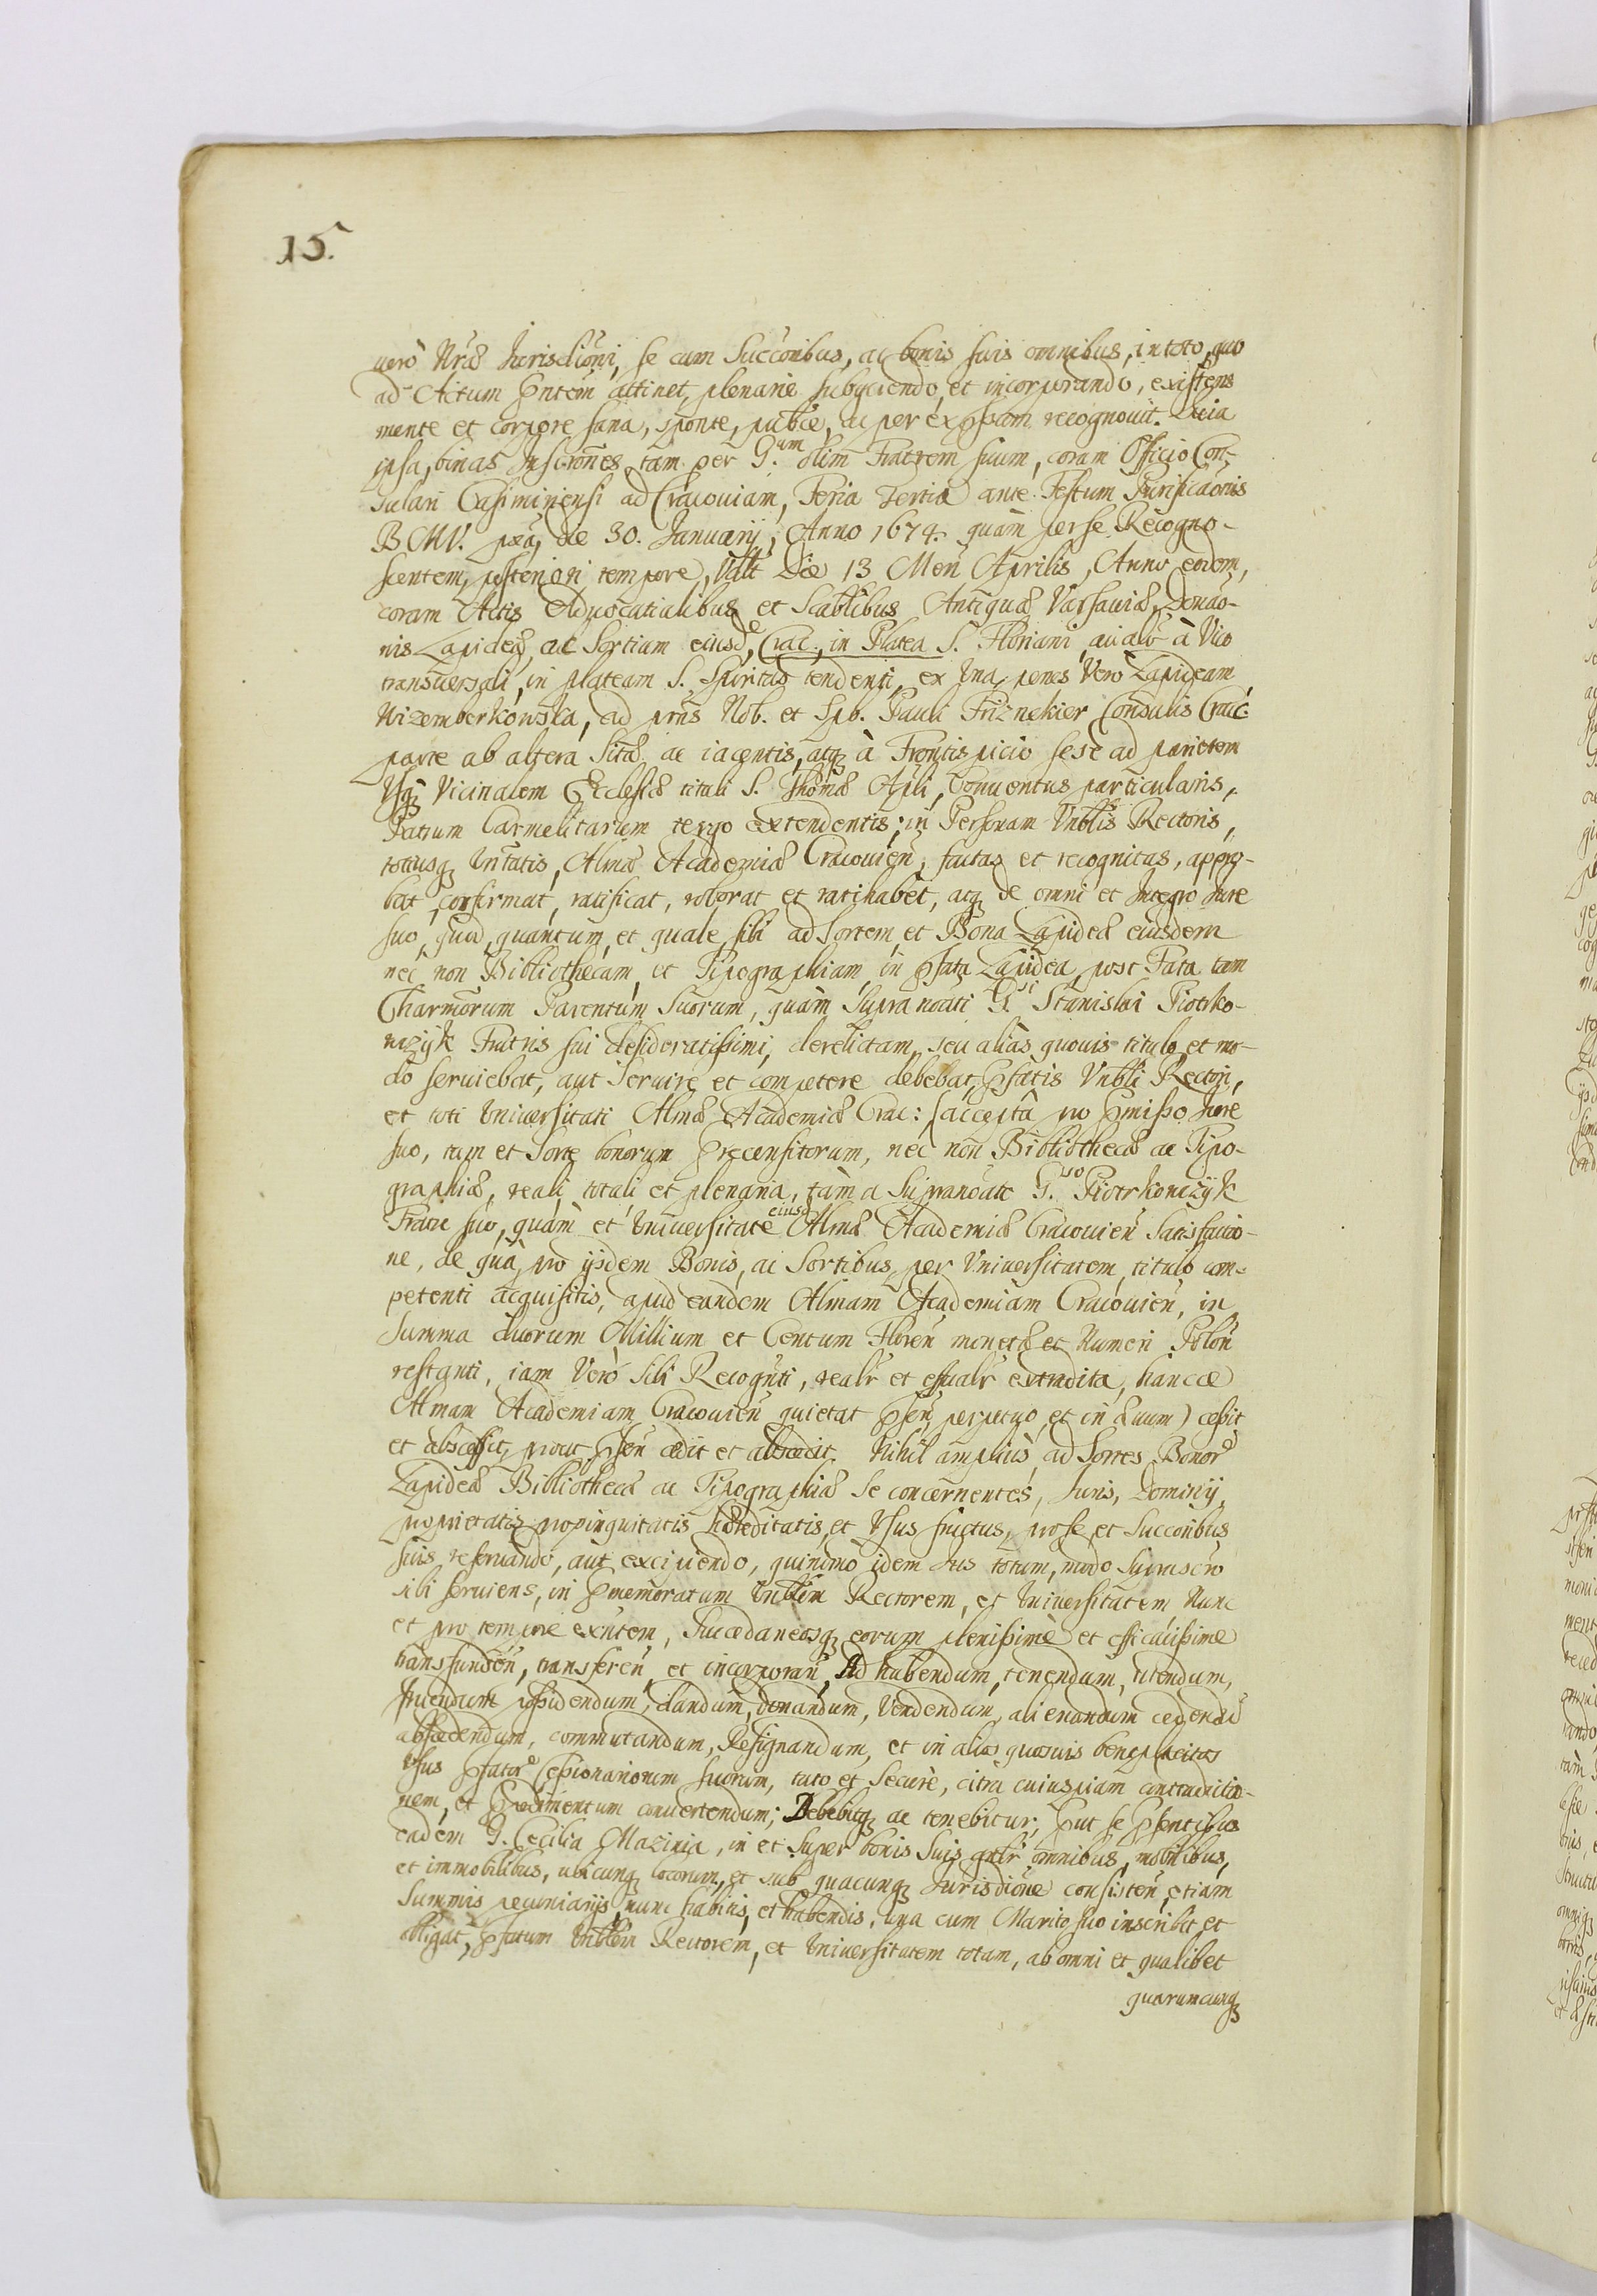 15.
uerò Nræ Jurisdictioni, se cum Succoribus, ac bonis suis omnibus, in toto, quo
ad Actum Pntem attinet, plenarie subyciendo, et incorporando, existens
mente et corpore sana, sponte, publce, ac per expssum recognouit. Quia
ipsa, binas Inscriones, tam per G.um olim Fratrem suum, coram Officio Con-
sulari Casimiriensi ad Cracouiam, Feria Tertia ante Festum Purificaonis
BMV. die 30. Januarij, Anno 1674. quàm per se Recogno-
scentem, posteriori tempore, Vdlt Die 13 Men Aprilis, Anno eodem,
coram Actis Aduocatialibus et Scablibus Antiquæ Varsauiæ, Donao-
nis Lapideæ, ac Sortium eiusd, Crac., in Platea S. Floriani, à Vico
transuersali, in plateam S. Spiritus tendenti, ex Vna, penes Vero Lapideam
Wizemberkowska, ad pns Nob. et Spb. Pauli Friznekier Consulis Crac.
parte ab altera Sitæ ac iacentis, atq à Frontispicio sese ad parietem
Vsq Vicinalem Ecclesiæ tituli S. Thomæ Apli, Conuentus particularis,
Patrum Carmelitarum tergo extendentis; in Personam Vnblis Rectoris,
totiusq Vntatis, Almæ Academiæ Cracouien, factas et recognitas, appro-
bat, confirmat, ratificat, roborat et ratihabet, atq de omni et Integro Jure
suo, quod, quantum, et quale, sibi ad Sortem, et Bona Lapideæ eiusdem
nec non Bibliothecam, et Tipographiam, in Pfata Lapidea, post Fata tam
Charmorum Parentum Suorum, quàm Supranoati G.si Stanislai Piotrko-
wczyk Fratris sui desideratissimi, derelictam, seu aliàs quouis titulo et mo-
do seruiebat, aut Seruire et competere debebat, Pfatis Vnbli Rectori,
et toti Vniuersitati Almæ Academiæ Crac: (acceptâ pro Pmisso Jure
suo, tum et Sorte bonorum Precensitorum, nec non Bibliothecæ ac Tipo-
graphiæ, reali, totali et plenaria, tàm a Supranoato G.so Piotrkowczyk
Fratre suo, quàm et Vniuersitate eiusd Almæ Academiæ Cracouien Satisfactio-
ne, de quà pro ijsdem Bonis, ac Sortibus, per Vniuersitatem, titulo com-
petenti acquisitis, apud eandem Almam Academiam Cracouien, in
Summa duorum Millium et Centum Floren monetæ et Numeri Polon
restanti, iam Verò sibi Recognti, realr et effualr extradita, hancce
Almam Academiam Cracouien quietat Psen, perpetuo, et in Æuum) cessit
et abscessit, prout Psen cedit et abscedit. Nihil ampliùs ad Sortes Bonor
Lapideæ Bibliothecæ ac Tipographiæ Se concernentes, Juris, Dominij,
proprietatis propinquitatis hæreditatis, et Vsus fructus, pro se, et Succoribus
suis reseruando, aut excipiendo, quinimo idem Jus totum, modo Suprascro
sibi seruiens, in Pmemoratum Vnblem Rectorem, et Vniuersitatem Nunc
et pro tempore exntem, Succedaneosq eorum plenissimè et efficacissime
transfunden, transferen, et incorporan, Ad habendum, tenendum, utendum,
fruendum possidendum, dandum, donandum, Vendendum, alienandum cedend
abscedendum, commutandum, Resignandum, et in alios quosuis beneplacitos
Vsus Pfator Cessionariorum suorum, tuto et Securè, citra cuiuspiam contradictio-
nem, et Pedimentum conuertendum; Debebitq ac tenebitur, Put se Psentibus
eadem G. Cecilia Maziria, in et Super bonis Suis gnlr omnibus, mobilibus,
et immobilibus, ubicunq locorum, et sub quacunq Jurisdione consisten, etiam
Summis pecuniarijs, nunc habitis, et habendis, una cum Marito suo inscribit et
obligat, Pfatum Vnblem Rectorem, et Vniuersitatem totam, ab omni et qualibet
quaruncunq